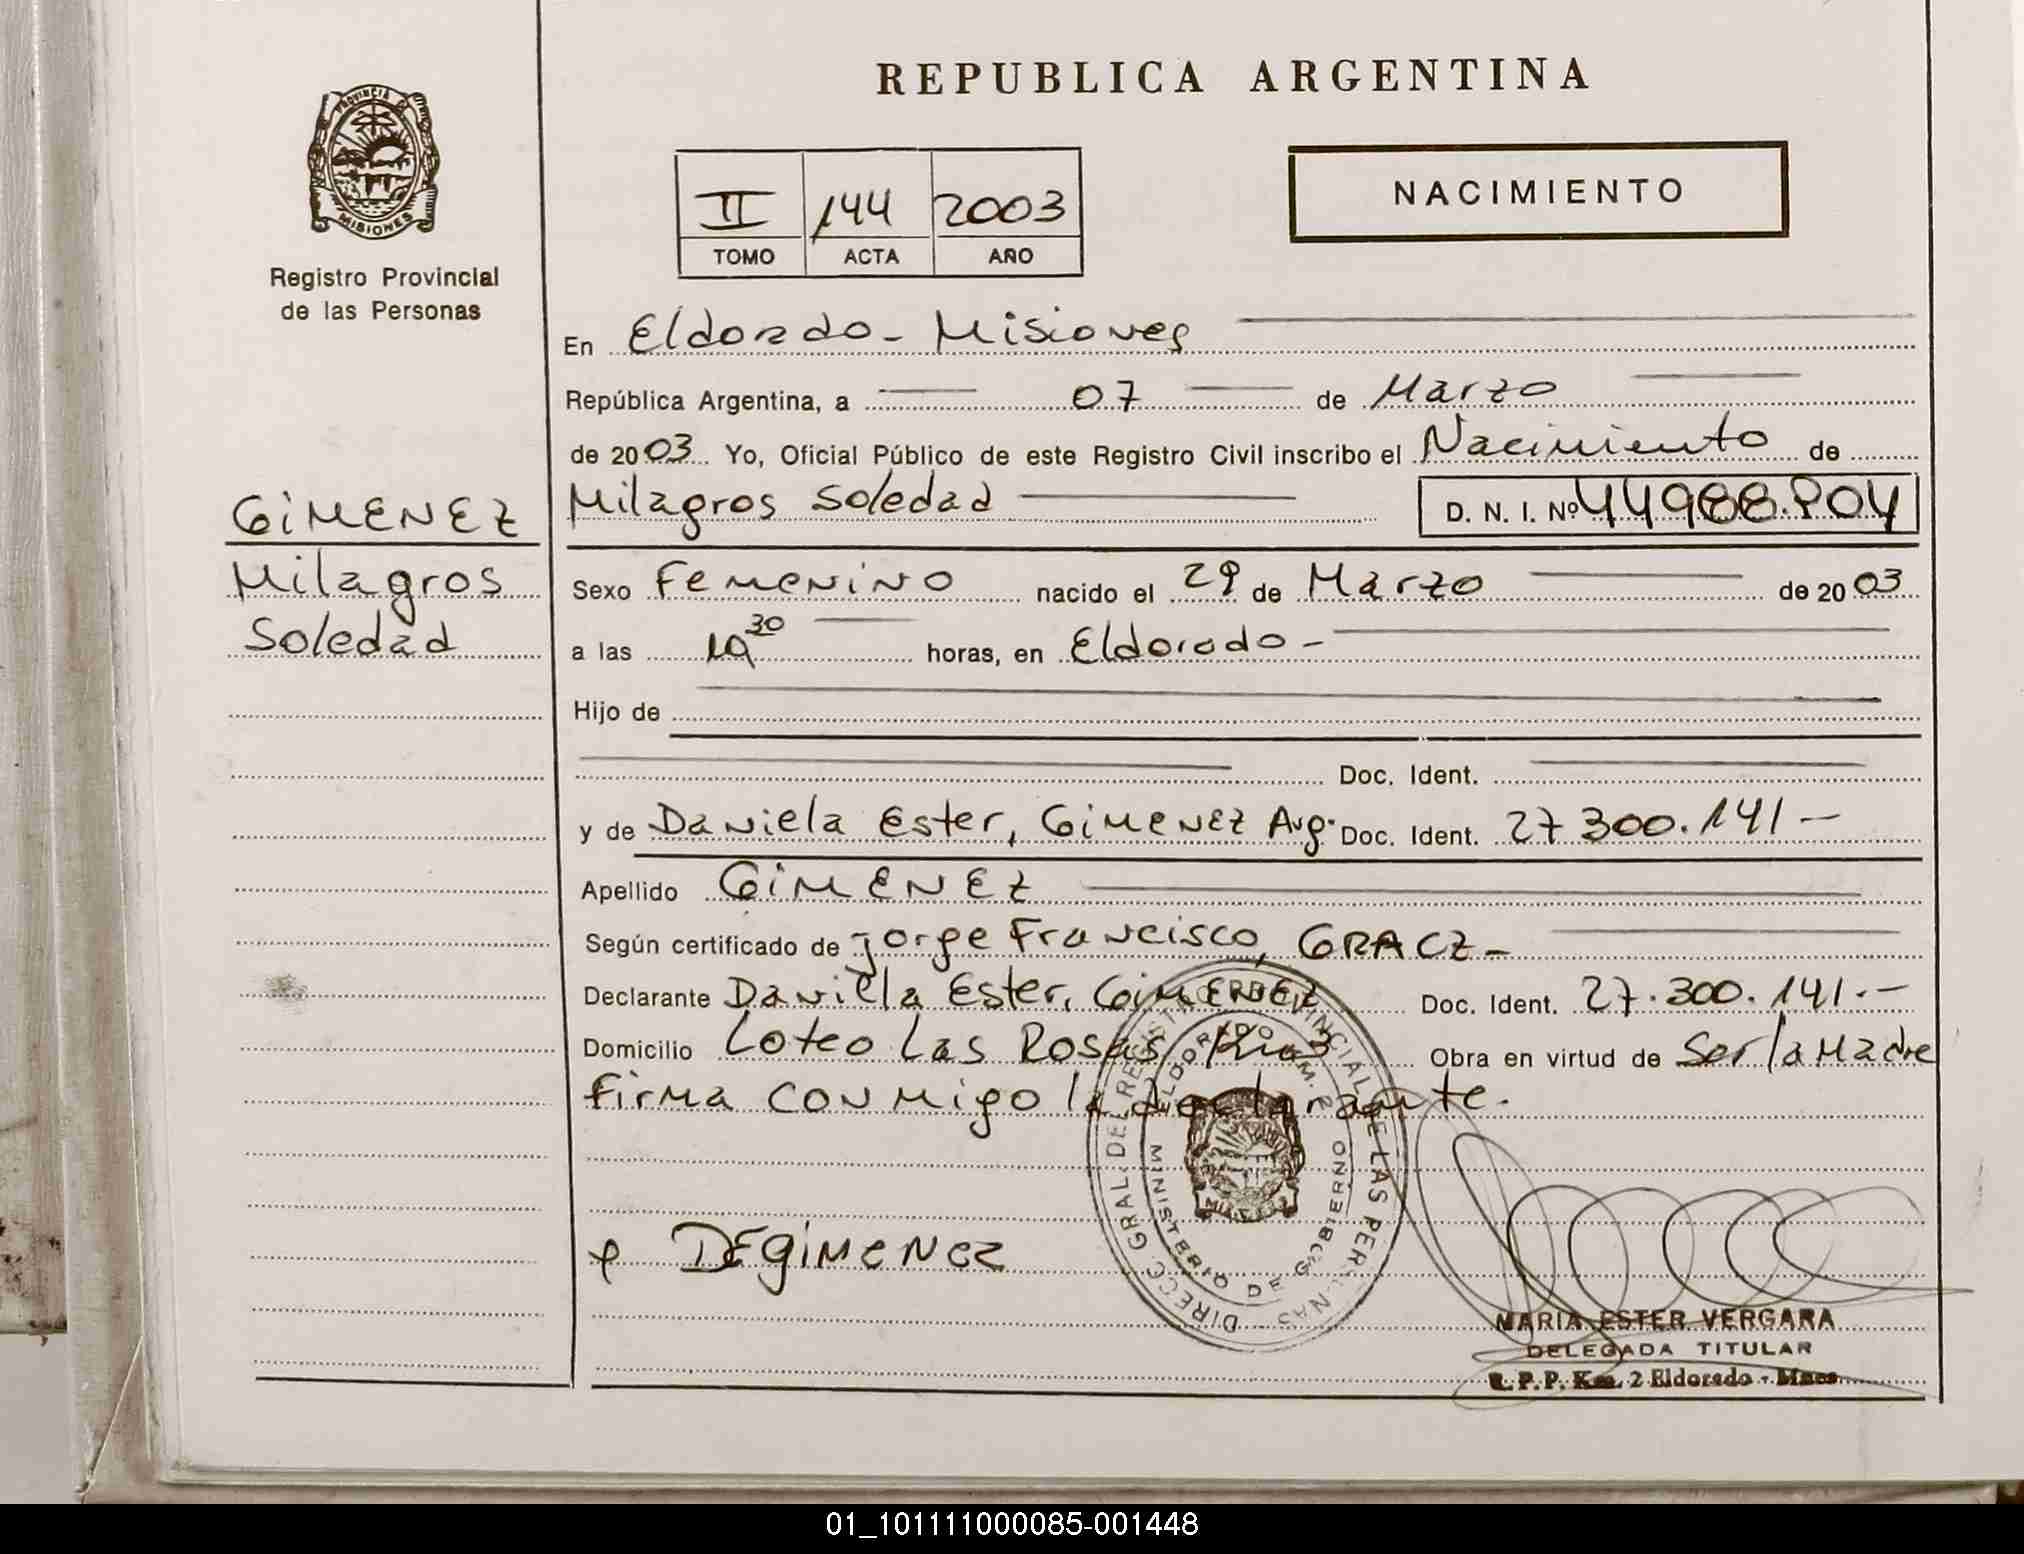 REPUBLICA ARGENTINA
PROVINCIA DE
MISIONES
Registro Provincial
de las Personas
II 144 2003
TOMO ACTA AÑO
NACIMIENTO
En Eldorado - Misiones
República Argentina, a 07 de Marzo
de 2003 Yo, Oficial Público de este Registro Civil inscribo el Nacimiento de
GIMENEZ
Milagros
Soledad
Milagros Soledad D. N. I. Nº 44988.904
Sexo Femenino nacido el 29 de Marzo de 2003
a las 19 30 horas, en Eldorado -
Hijo de
Doc. Ident.
y de Daniela Ester, GIMENEZ Arg. Doc. Ident. 27 300.141 -
Apellido GIMENEZ
Según certificado de Jorge Francisco, GRACZ -
Declarante Daniela Ester, GIMENEZ Doc. Ident. 27.300.141.-
Domicilio Loteo Las Rosas, Km3 Obra en virtud de Ser la Madre
Firma conmigo la declarante.
DIRECC. GRAL. DEL REGISTRO PROVINCIAL DE LAS PERSONAS
ELDORADO KM. 2
MINISTERIO DE GOBIERNO
MISIONES
DEGIMENEZ
MARIA ESTER VERGARA
DELEGADA TITULAR
R.P.P. Km. 2 Eldorado - Mnes
01_101111000085-001448